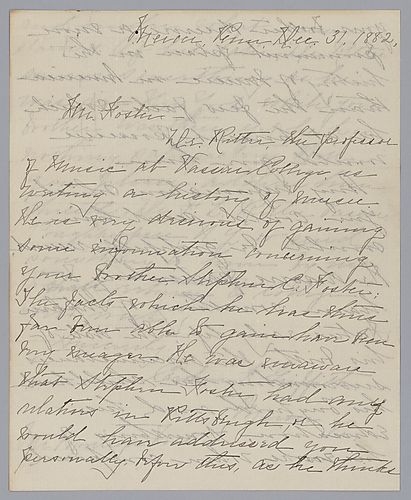 Penn Dec. 31, 1882.
Mr. Foster
Dr. Ritter the professor
of Music at Vassar College is
writing a history of music.
He is very desirous of gaining
some information concerning
your brother Stephen C. Foster.
The facts which he has thus
far been able to gain have been
very meager. He was unaware
that Stephen Foster had any
relatives in Pittsburgh, or he
would have addressed you
personally upon this, as he thinks